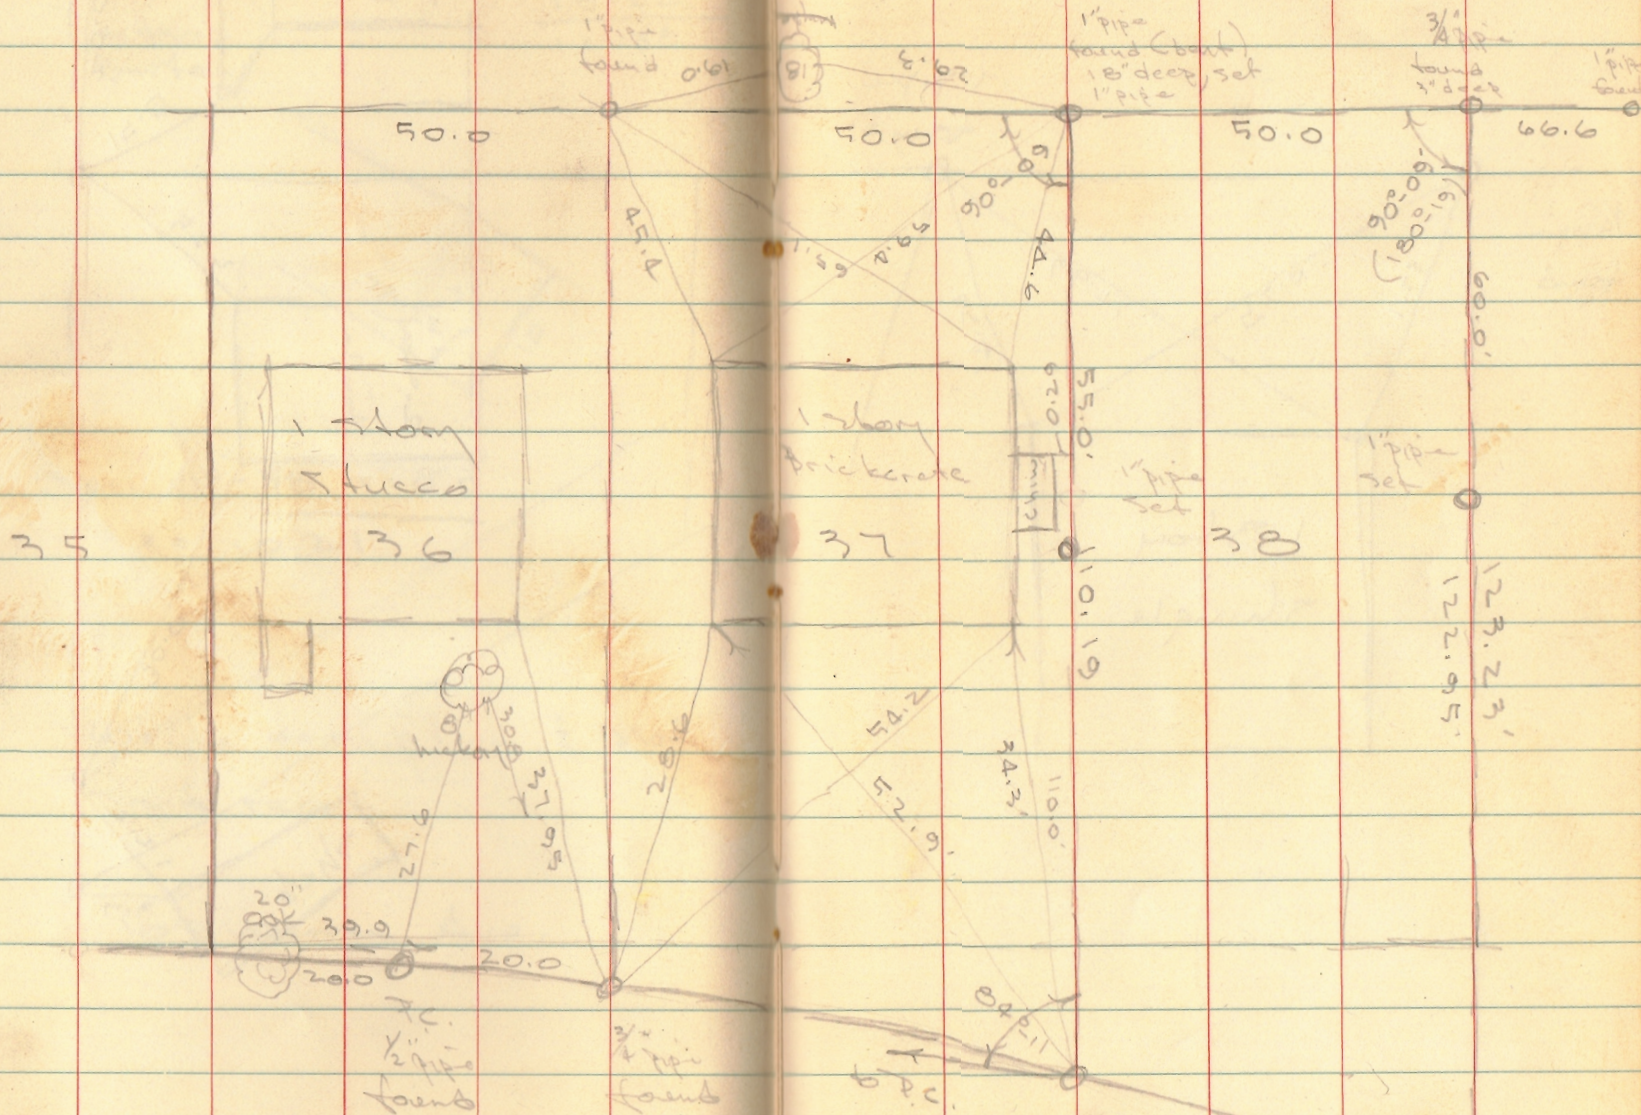 1" pipe
found
19.0
18
29.3
1" pipe
found (bent)
18" deep, set
1" pipe
3/4" pipe
found
3" deep
1" pipe
found
50.0
50.0
50.0
66.6
45.4
65.1
59.4
90°
44.6
90°-09'
(180°-19')
60.0'
1 Story
Stucco
1 Story
Brickcrete
62.0
55.0'
chim
1" pipe
set
1" pipe
set
35
36
37
38
110.19
123.23'
122.95'
8"
hickory
30.8
37.95
28.6
27.6
54.2
52.9'
34.3'
110.0'
20"
oak
39.9
20.0
20.0
P.C.
1/2" pipe
found
3/4" pipe
found
84°-11'
to P.C.